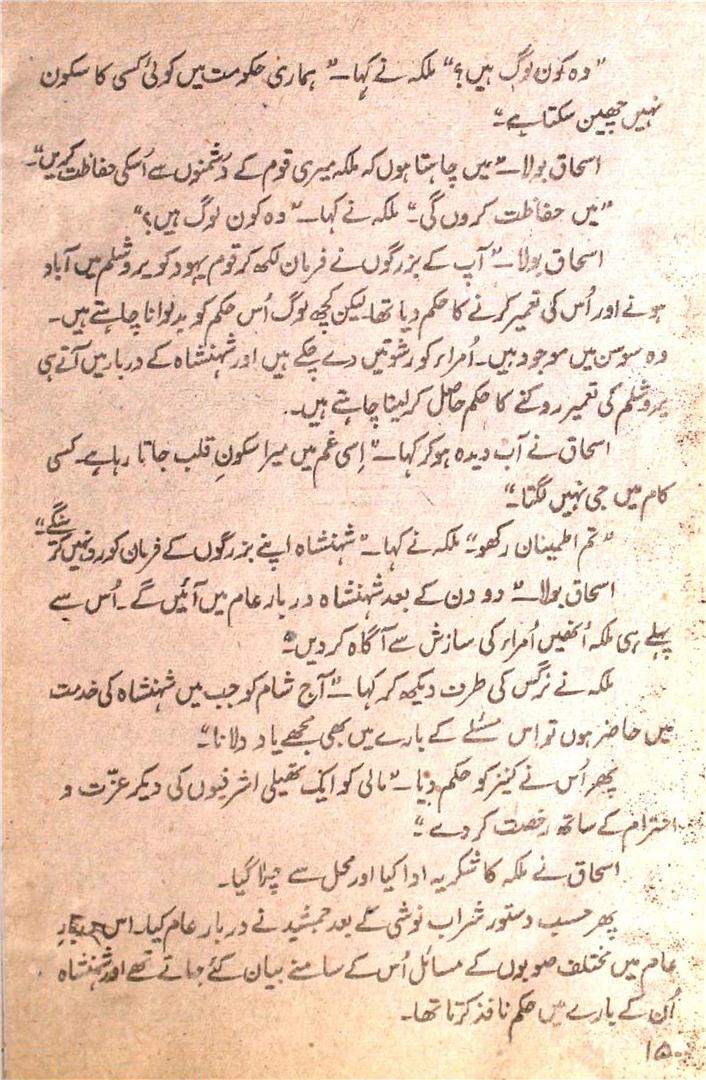 ”وہ کون لوگ ہیں؟“ ملکہ نے کہا۔” ہماری حکومت میں کوئی کسی کا سکون
نہیں چھین سکتا ہے۔“
اسحاق بولا۔” میں چاہتا ہوں کہ ملکہ میری قوم کے دشمنوں سے اُسکی حفاظت کریں۔“
”میں حفاظت کروں گی۔“ ملکہ نے کہا۔” وہ کون لوگ ہیں؟“
اسحاق بولا۔” آپ کے بزرگوں نے فرمان لکھ کر قوم یہود کو یروشلم میں آباد
ہونے اور اُس کی تعمیر کرنے کا حکم دیا تھا۔ لیکن کچھ لوگ اُس حکم کو بدلوانا چاہتے ہیں۔
وہ سوسن میں موجود ہیں۔ اُمراء کو رشوتیں دے چکے ہیں اور شہنشاہ کے دربار میں آتے ہی
یروشلم کی تعمیر روکنے کا حکم حاصل کر لینا چاہتے ہیں۔
اسحاق نے آب دیدہ ہو کر کہا۔” اِسی غم میں میرا سکونِ قلب جاتا رہا ہے۔ کسی
کام میں جی نہیں لگتا۔“
”تم اطمینان رکھو۔“ ملکہ نے کہا۔” شہنشاہ اپنے بزرگوں کے فرمان کو رد نہیں کرینگے۔“
اسحاق بولا۔” دو دن کے بعد شہنشاہ دربار عام میں آئیں گے۔ اُس سے
پہلے ہی ملکہ اُنھیں اُمراء کی سازش سے آگاہ کر دیں۔“
ملکہ نے نرگس کی طرف دیکھ کر کہا۔” آج شام کو جب میں شہنشاہ کی خدمت
میں حاضر ہوں تو اِس مسئلے کے بارے میں بھی مجھے یاد دلانا۔“
پھر اُس نے کنیز کو حکم دیا۔” مالی کو ایک تھیلی اشرفیوں کی دیکر عزّت و
احترام کے ساتھ رخصت کر دے۔“
اسحاق نے ملکہ کا شکریہ ادا کیا اور محل سے چلا گیا۔
پھر حسب دستور شراب نوشی کے بعد جمشید نے دربار عام کیا۔ اس دربارِ
عام میں مختلف صوبوں کے مسائل اُس کے سامنے بیان کئے جاتے تھے اور شہنشاہ
اُن کے بارے میں حکم نافذ کرتا تھا۔
۱۵۰